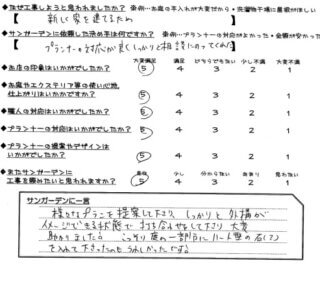 ◆なぜ工事しようと思われましたか？
新しく家を建てるため
◆サンガーデンに依頼した決め手は何ですか？
プランナーの対応が良くしっかりと相談にのってくれた
大変満足 満足 どちらでもない 少し不満 大変不満
◆お店の印象はいかがでしたか？ 5 4 3 2 1
◆お庭やエクステリア等の使い心地、
仕上がりはいかがですか？ 5 4 3 2 1
◆職人の対応はいかがでしたか？ 5 4 3 2 1
◆プランナーの対応はいかがでしたか？ 5 4 3 2 1
◆プランナーの提案やデザインは
いかがでしたか？ 5 4 3 2 1
◆またサンガーデンに
工事を頼みたいと思われますか？ 5 4 3 2 1
サンガーデンに一言
様々なプランを提案して下さり、しっかりと外構が
イメージできる状態で打ち合わせをして下さり大変
助かりました。こっそり庭の一部分にハート型の石(?)
を入れて下さったのもうれしかったです。